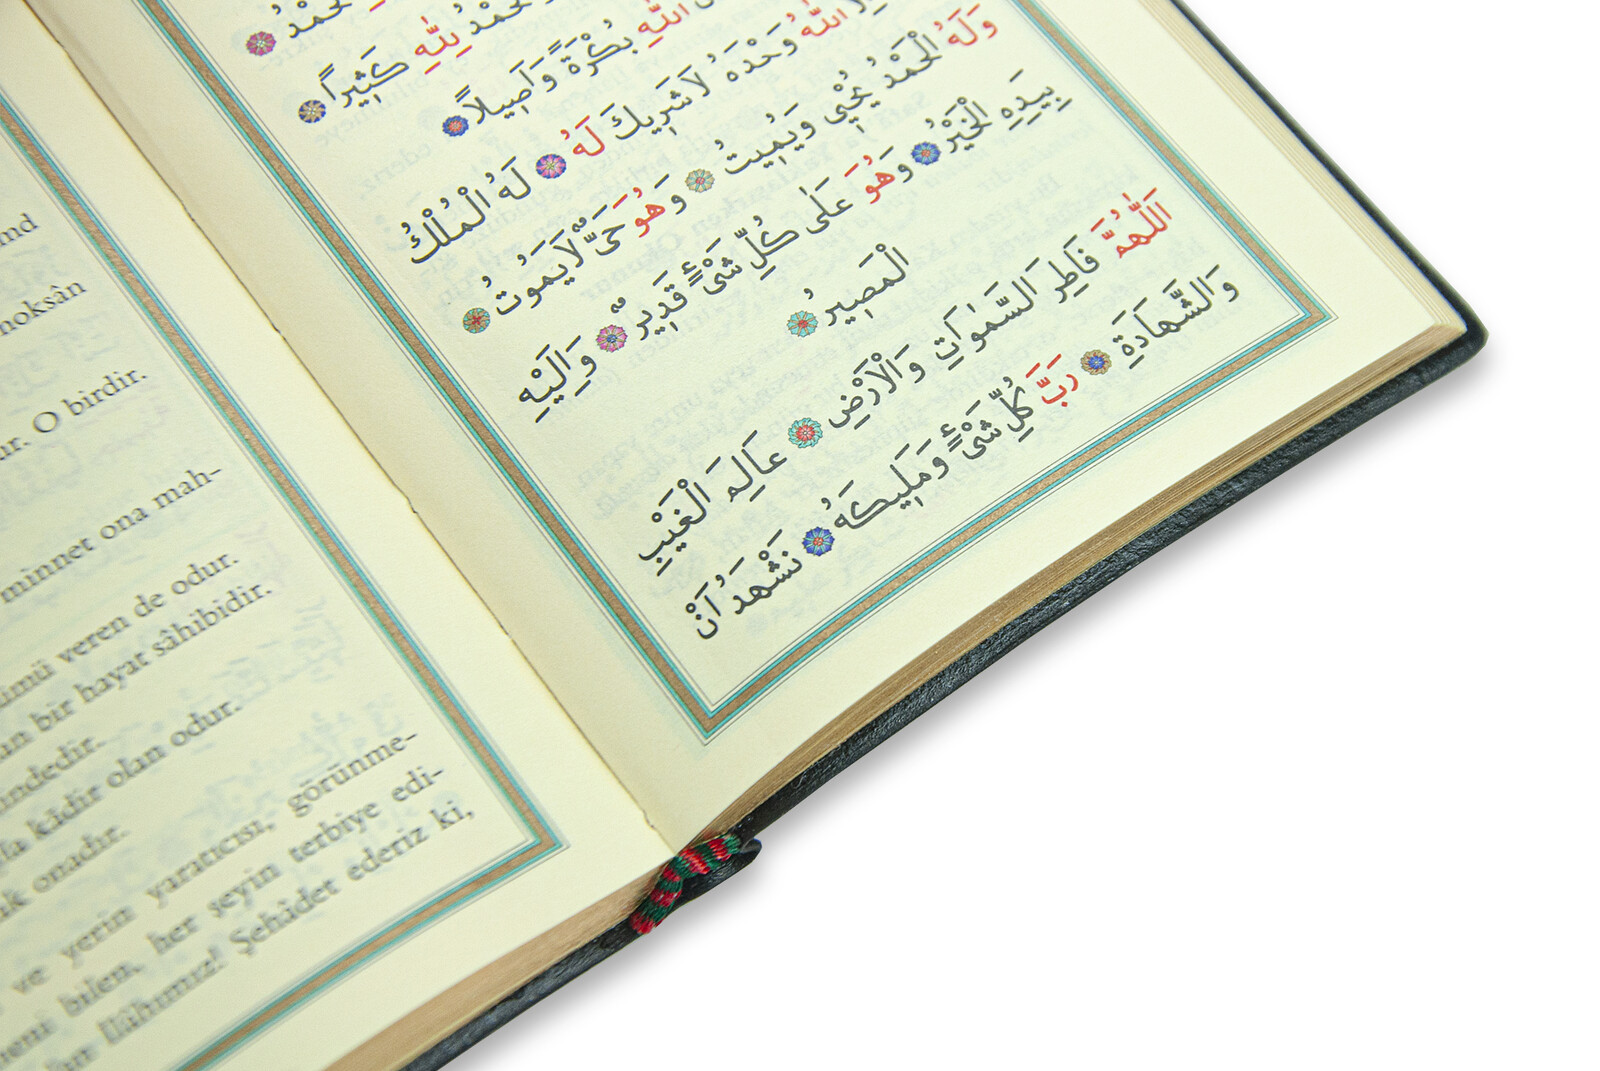 لِلّٰهِ كَثِيرًا
اللّٰهِ بُكْرَةً وَاَصِيلًا
اللّٰهُ وَحْدَهُ لَا شَرِيكَ لَهُ لَهُ الْمُلْكُ
وَلَهُ الْحَمْدُ يُحْيِي وَيُمِيتُ وَهُوَ حَيٌّ لَا يَمُوتُ
بِيَدِهِ الْخَيْرُ وَهُوَ عَلٰى كُلِّ شَيْءٍ قَدِيرٌ وَاِلَيْهِ
الْمَصِيرُ
اَللّٰهُمَّ فَاطِرَ السَّمٰوَاتِ وَالْاَرْضِ عَالِمَ الْغَيْبِ
وَالشَّهَادَةِ رَبَّ كُلِّ شَيْءٍ وَمَلِيكَهُ نَشْهَدُ اَنْ
noksân
O birdir.
minnet ona mah-
veren de odur.
bir hayat sâhibidir.
kâdir olan odur.
onadır.
ve yerin yaratıcısı, görünme-
bilen, her şeyin terbiye edi-
İlâhımız! Şehâdet ederiz ki,